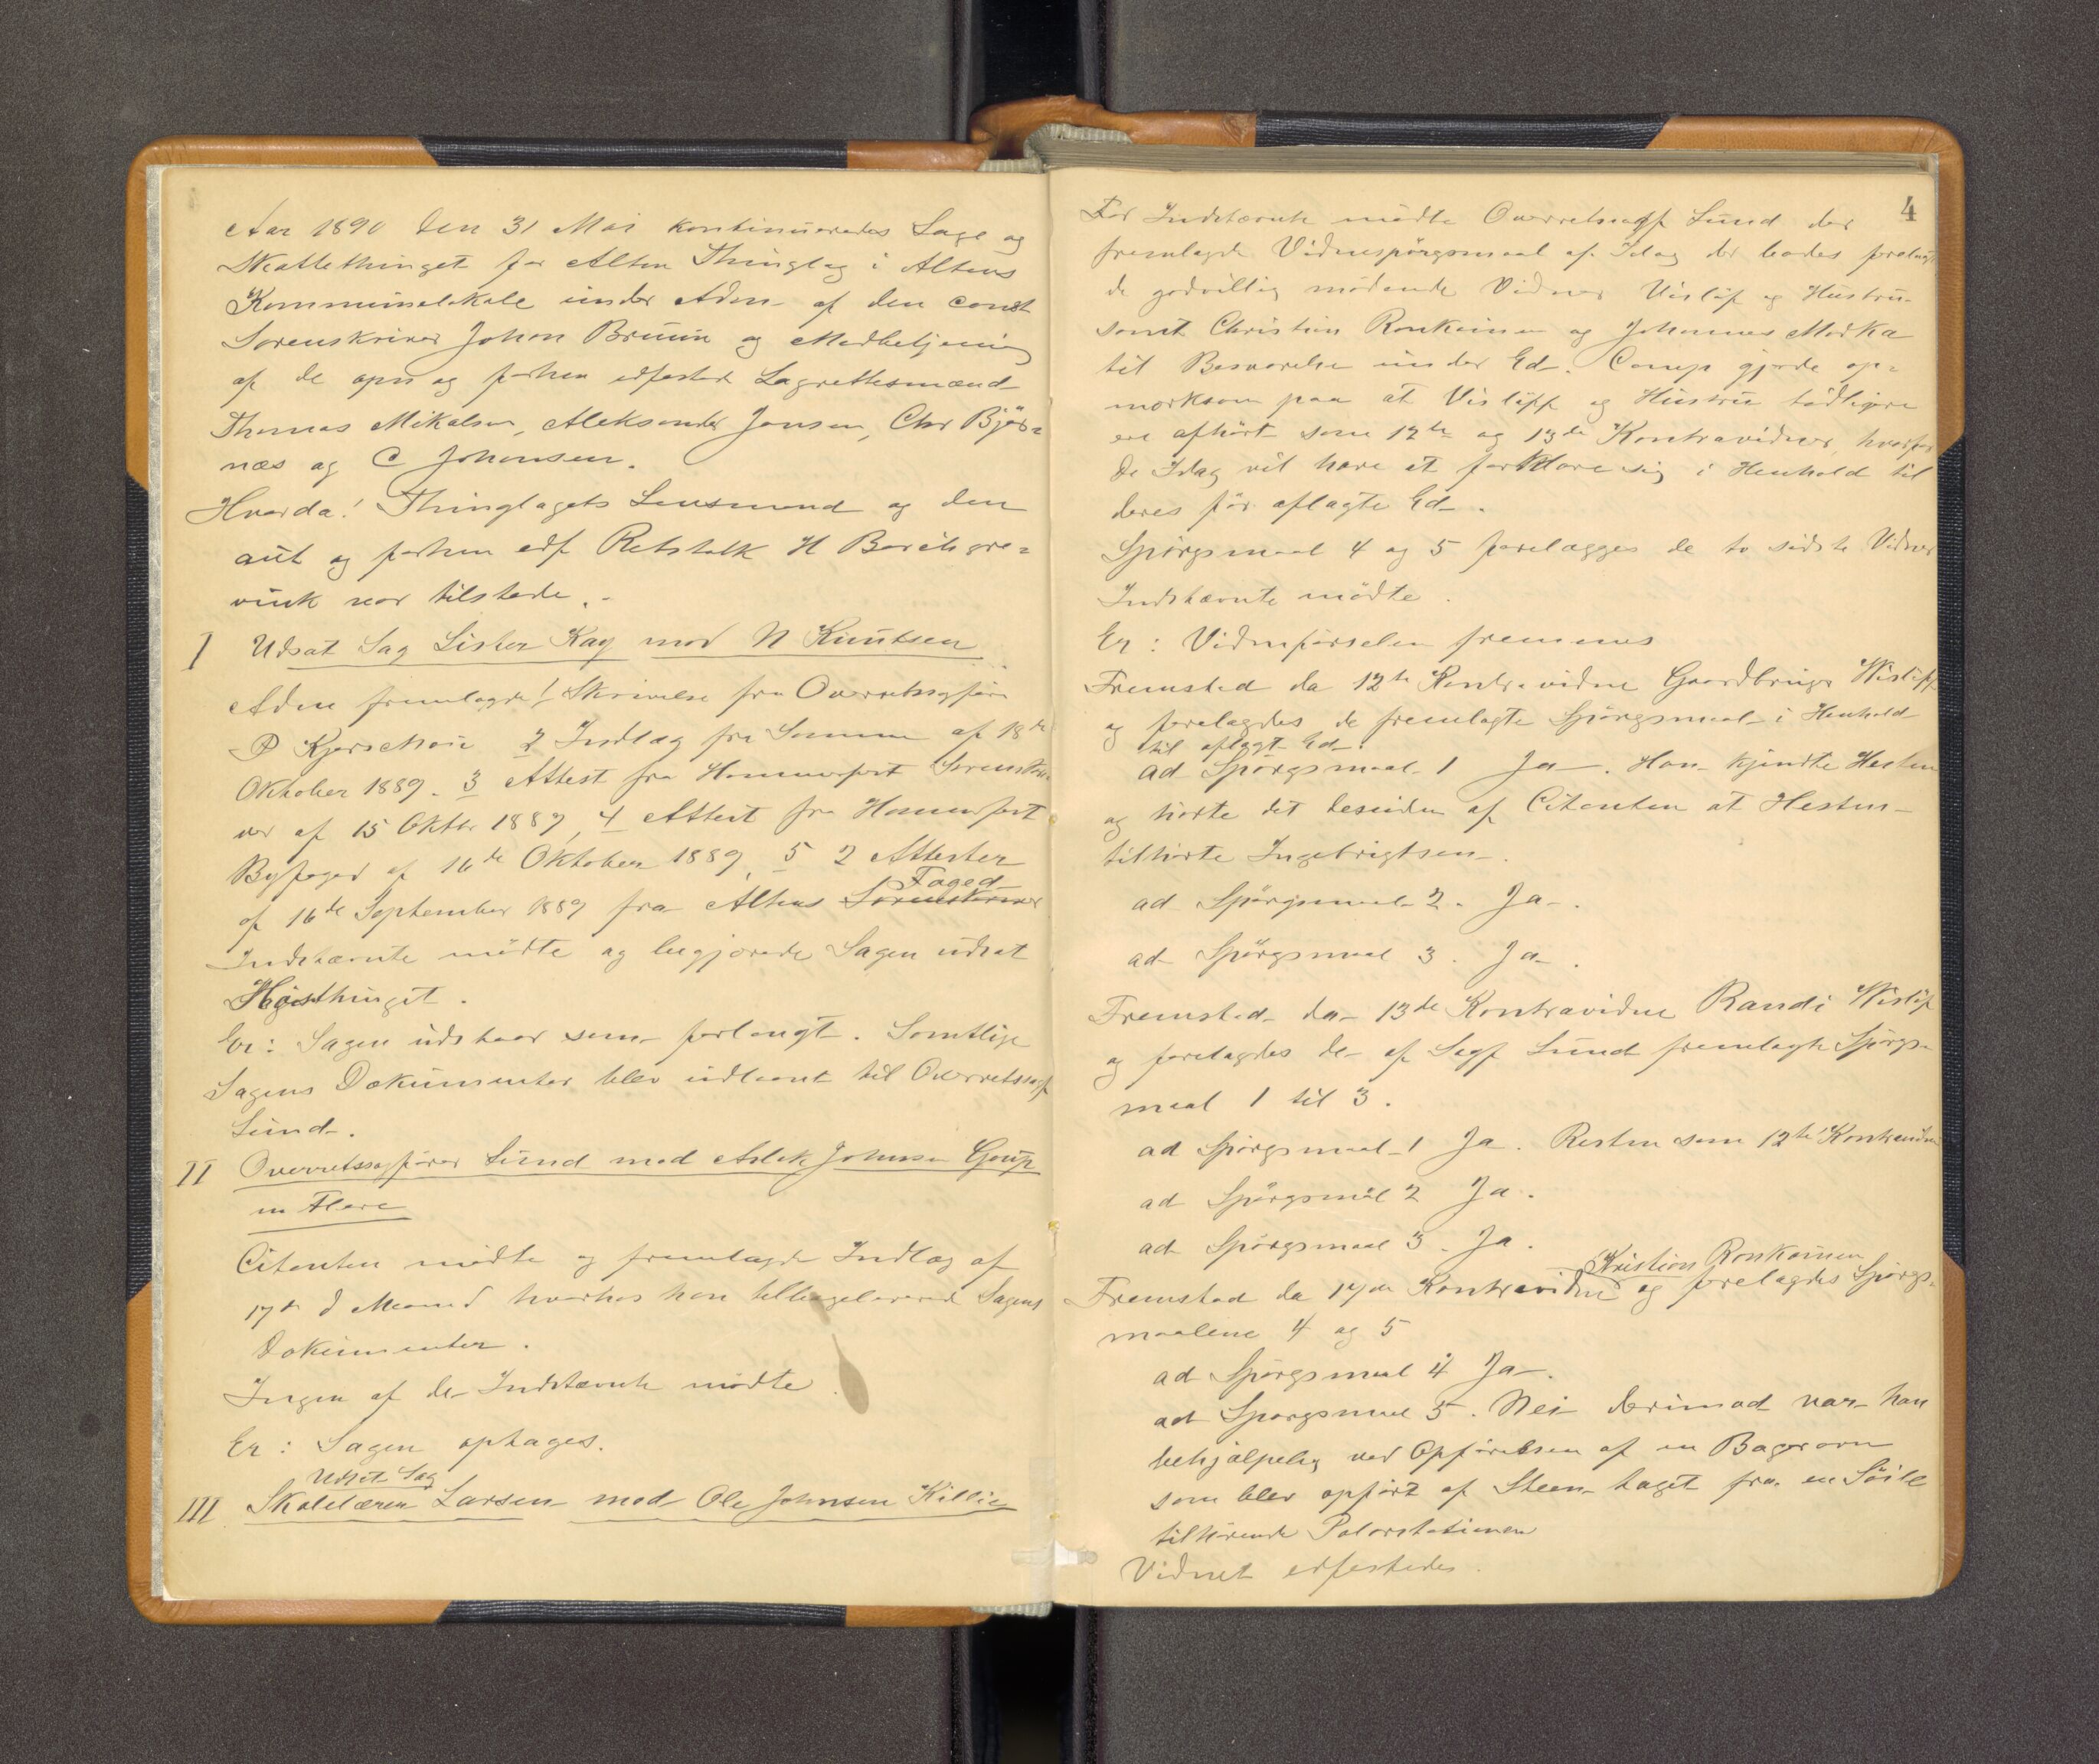 Aar 1890 den 31 Mai kontinueredes Sage og
Skattethinget for Alten Thinglag i Altens
Kommunelokale under Adm. af den const
Sorenskriver Johan Bruun og Medbetjening
af de opn og forhen edfæstede Lagrettesmænd
Thomas Mikalsen, Aleksander Jansen, Chr Bjør=
næs og C Johansen.
Hvorda! Thinglagets Lensmand og den
aut og forhen edf Retstolk H Borchgre=
vink var tilstede.-
I Udsat Sag Lister Kay mod N Knutsen
Adm fremlagde 1 Skrivelse fra Overretssagfører
P Kjerschou 2 Indlæg fra Samme af 18de
Oktober 1889. 3 Attest fra Hammerfest Sorenskri
ver af 15 Oktbr 1889, 4 Attest fra Hammerfest
Byfoged af 16de Oktober 1889, 5 2 Attester
Foged
af 16de September 1889 fra Altens Sorenskriver
Indstævnte mødte og begjærede Sagen udsat
Høstthinget.
Er: Sagen udstaar som forlangt. Samtlige
Sagens Dokumenter blev udlaant til Overretssagf
Lund.
II Overretssagfører Lund mod Aslak Johnsen Goup
m Flere
Citanten mødte og fremlagde Indlæg af
17de d Maaned hvorhos han tilbageleverede Sagens
Dokumenter.
Ingen af de Indstævnte mødte.
Er: Sagen optages.
Udsat Sag
III Skolelærer Larsen mod Ole Johnsen Killie
4
For Indstævnte mødte Overretssagf Lund der
fremlagde Vidnespørgsmaal af Idag der bades forelagt
de godvillig mødende Vidner Wisløff og Hustru
samt Christian Ronkainen og Johannes Marka
til Besvarelse under Ed. Comp gjorde op=
mærksom paa at Wisløff og Hustru tidligere
ere afhørt som 12te og 13de Kontravidner, hvorfor
de Idag vil have at forklare sig i Henhold til
deres før aflagte Ed.
Spørgsmaal 4 og 5 forelægges de to sidste Vidner
Indstævnte mødte.
Er: Vidneførselen fremmes
Fremstod da 12te Kontravidne Gaardbruger Wisløff
og forelagdes de fremlagte Spørgsmaal i Henhold
til aflagt Ed.
ad Spørgsmaal 1 Ja. Han kjendte Hesten
og hørte det desuden af Citanten at Hesten
tilhørte Ingebrigtsen.
ad Spørgsmaal 2. Ja.
ad Spørgsmaal 3. Ja.
Fremstod da 13de Kontravidne Randi Wisløff
og forelagdes de af Sagf Lund fremlagte Spørgs=
maal 1 til 3.
ad Spørgsmaal 1 Ja. Resten som 12te Kontravidne
ad Spørgsmaal 2 Ja.
ad Spørgsmaal 3. Ja.
Kristian Ronkainen
Fremstod da 14de Kontravidne og forelagdes Spørgs=
maalene 4 og 5
ad Spørgsmaal 4 Ja.
ad Spørgsmaal 5. Nei derimod var han
behjælpelig ved Opførelsen af en Bagerovn
som blev opført af Steen taget fra en Søile
tilhørende Polarstationen
Vidnet edfæstedes.